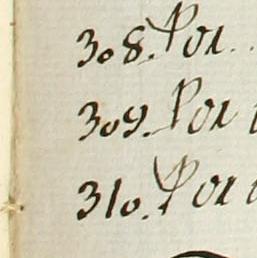 308. Por
309. Por
310. Por